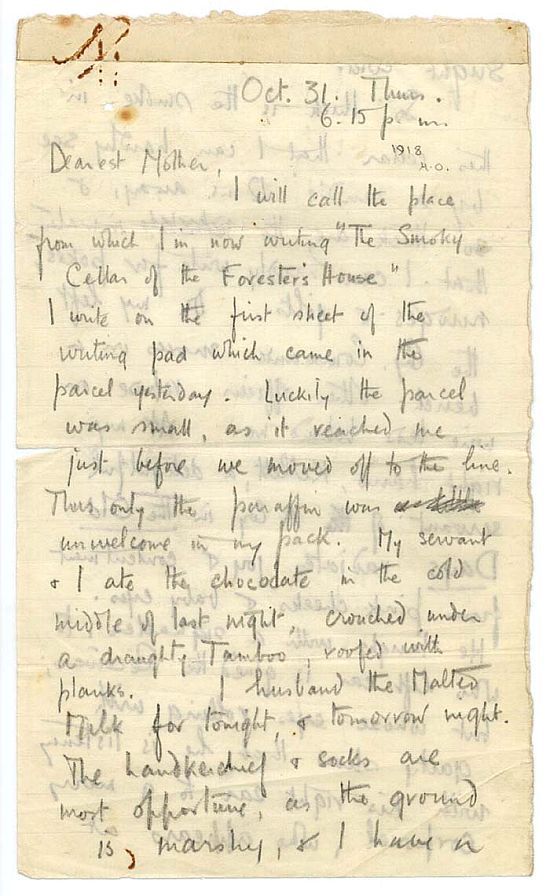 Oct. 31. Thurs.
6.15 p.m.
1918
H.O.
Dearest Mother,
I will call the place
from which I'm now writing "The Smoky
Cellar of the Forester's House"
I write on the first sheet of the
writing pad which came in the
parcel yesterday. Luckily the parcel
was small, as it reached me
just before we moved off to the line.
Thus only the paraffin was
unwelcome in my pack. My servant
& I ate the chocolate in the cold
middle of last night, crouched under
a draughty Tamboo, roofed with
planks. I husband the Malted
Milk for tonight, & tomorrow night.
The handkerchief & socks are
most opportune, as the ground
is marshy, & I have a